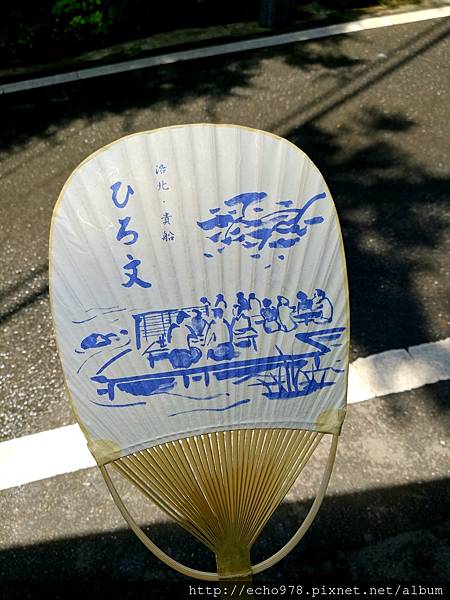 洛北・貴船
ひろ文
http://echo978.pixnet.net/album